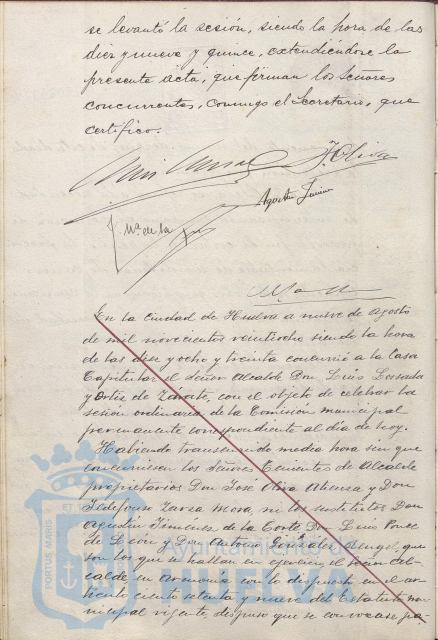 se levantó la sesión, siendo la hora de las
diez y nueve y quince, extendiendose la
presente acta, que firman los señores
concurrentes, conmigo el Secretario, que
certifico.
J. Oliva
Agustin Jimenez
J. Mª de la
En la ciudad de Huelva a nueve de agosto
de mil novecientos veintiocho siendo la hora
de las diez y ocho y treinta concurrió a la Casa
Capitular el señor Alcalde Don Luis Losada
y Ortiz de Zárate, con el objeto de celebrar la
sesión ordinaria de la Comisión municipal
permanente correspondiente al día de hoy.
Habiendo transcurrido media hora sin que
concurriesen los señores Tenientes de Alcalde
propietarios Don José Oliva Atienza y Don
Ildefonso Zarza Mora, ni los sustitutos Don
Agustín Jimenez de la Corte Don Luis Ponce
de León y Don Antonio González Rengel, que
son los que se hallan en ejercicio, el señor Al-
calde en armonia con lo dispuesto en el ar-
tículo ciento setenta y nueve del Estatuto mu-
nicipal vigente, dispuso que se convocase pa-
PORTUS MARIS ET
Ayuntamiento de
HUELVA